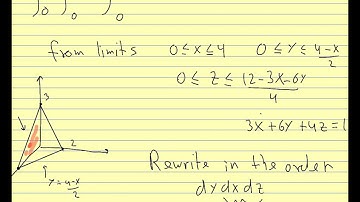 0 0 0
from limits 0≤x≤4 0≤y≤(4-x)/2
0≤z≤(12-3x-6y)/4
3
3x+6y+4z=1
2
Rewrite in the order
y=(4-x)/2
dy dx dz